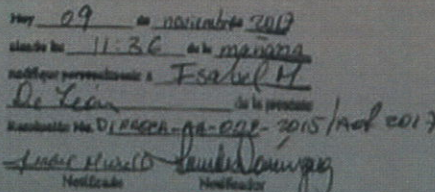 Hoy 09 de noviembre de 2017
siendo las 11:36 de la mañana
notifique personalmente a Isabel M
De León de la presente
Resolución No. DIPROCA-AA-002-2015/Mod 2017
Notificado Notificador